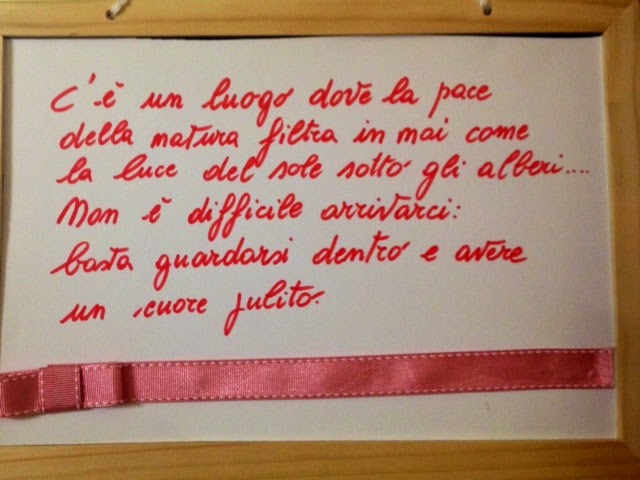 C'è un luogo dove la pace
della natura filtra in noi come
la luce del sole sotto gli alberi....
Non è difficile arrivarci:
basta guardarsi dentro e avere
un cuore pulito.